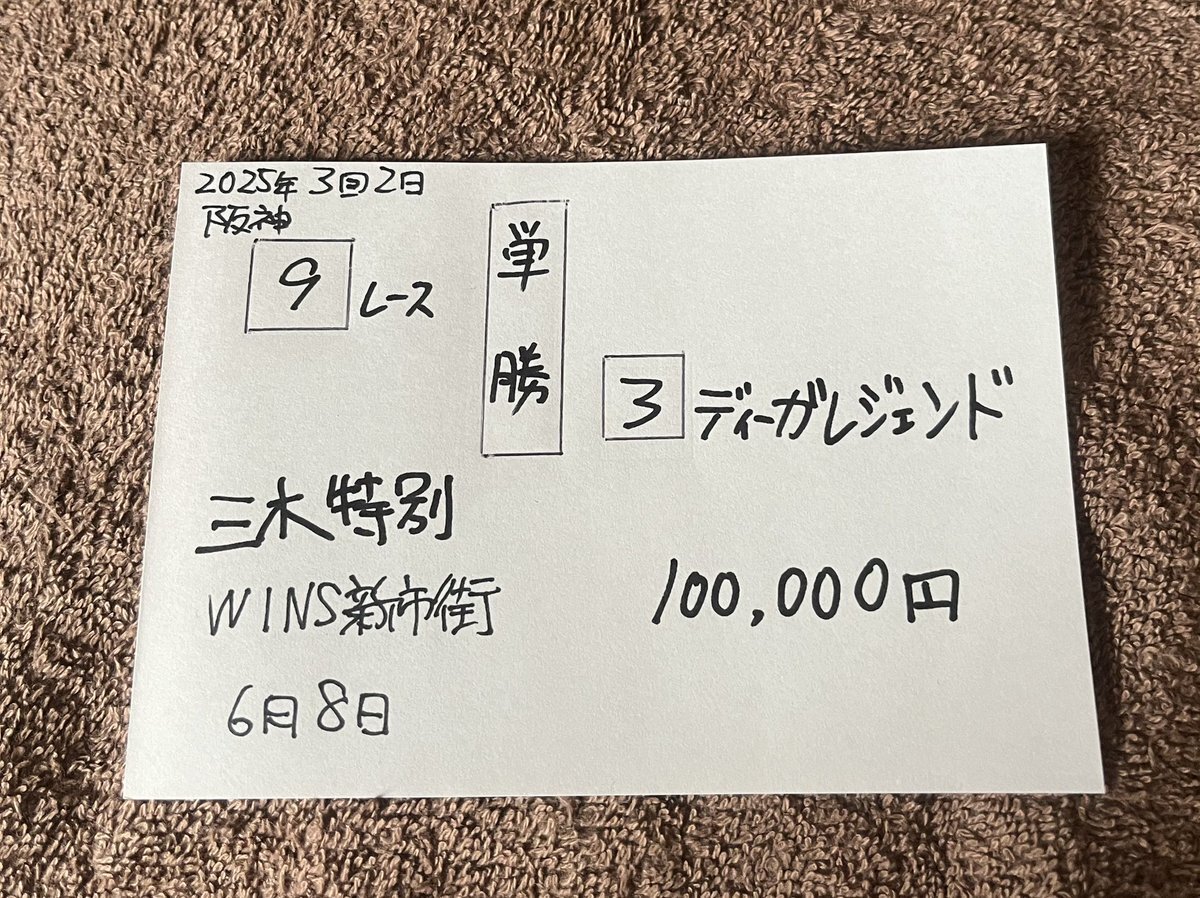 2025年 3回2日
阪神
9 レース
単勝
3 ディーガレジェンド
三木特別
WINS新市街
100,000円
6月8日